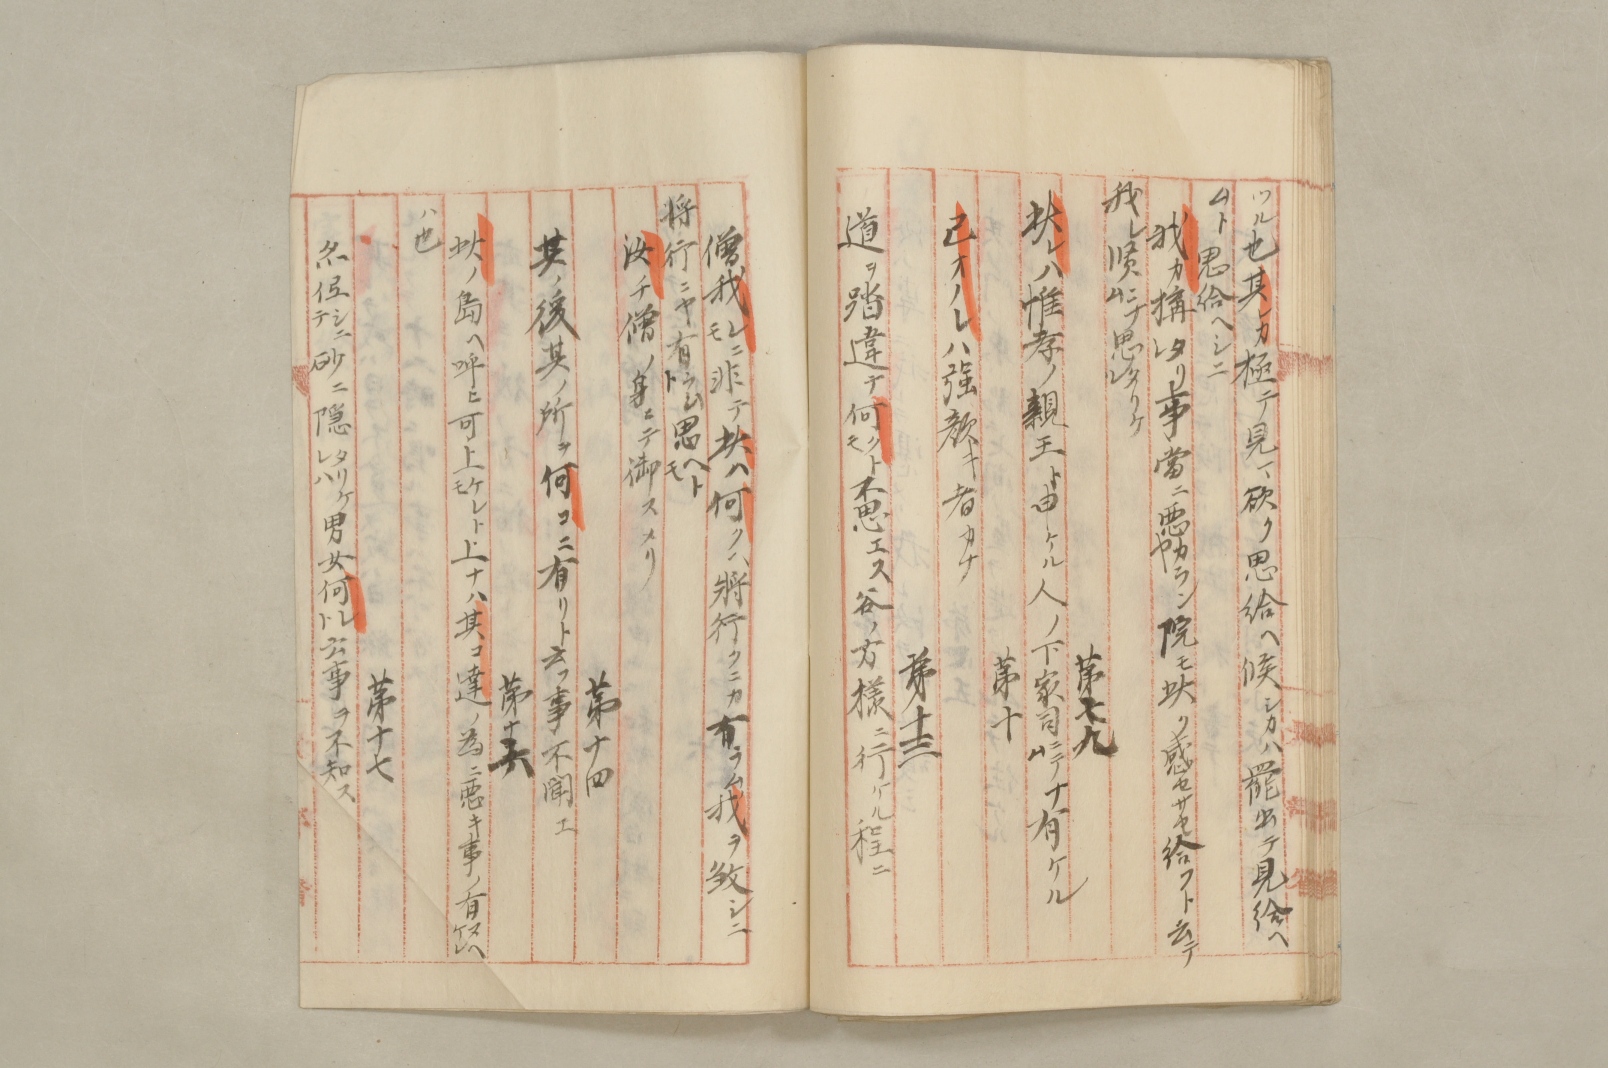 ツル也其レカ極テ見マ欲ク思給ヘ候シカハ罷出テ見給ヘ
ムト思給ヘシニ
我カ構ヘタリ事當ニ悪カランヤ院モ此ク感セサセ給フト云テ
我レ順ニナ思タリケル
第九
此レハ惟孝ノ親王ト由ケル人ノ下家司ニテナ有ケル
第十
己オノレハ強顔キ者カナ
第十三
道ヲ踏違テ何クトモ不思エス谷ノ方様ニ行ケル程ニ
僧我レニモ非テ此ハ何クヘ将行クニカ有ラム我ヲ敛シニ
将行ニヤ有ラムト思ヘトモ
汝チ僧ノ身ニテ御スメリ
第十四
其ノ後其ノ所ヲ何コニ有リト云フ事不聞エ
第十六
此ノ島ヘ呼ヒ可上ケレトモ上ナハ其コ達ノ為ニ悪キ事ノ有ヌヘケレ
ハ也
第十七
糸伍テシニ砂ニ隠レタリケレハ男女何レト云事ヲ不知ス